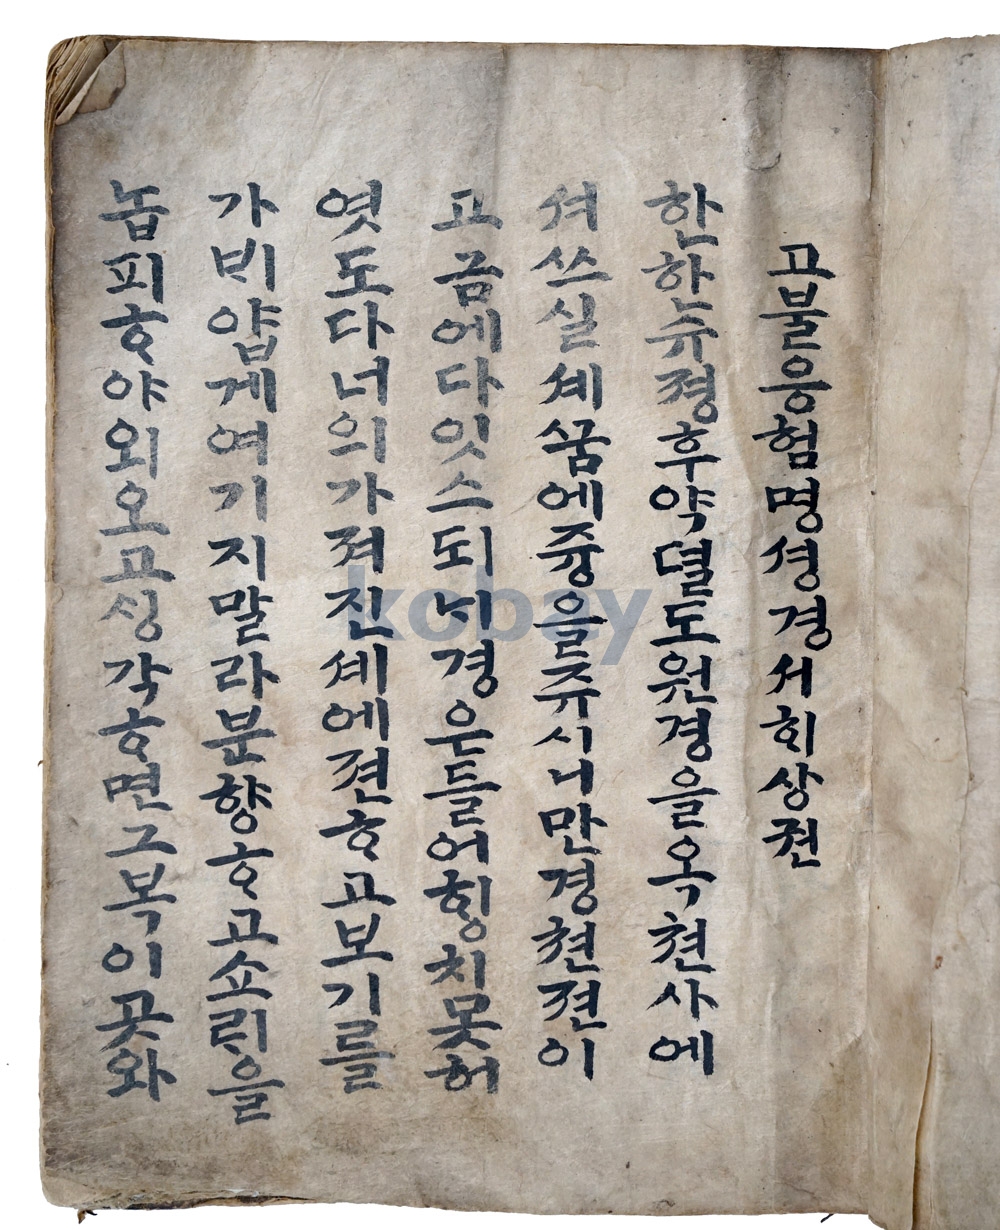 고불응험명셩경서희상젼
한한슈졍후약뎔도원경을옥쳔사에
셔쓰실셰꿈에즁을쥬시니만경쳔젼이
고금에다잇스되ᄂᆡ경은들어ᄒᆡᆼ치못허
엿도다너의가져진셰에젼ᄒᆞ고보기를
가ᄇᆡ얍게여기지말라분향ᄒᆞ고쇼ᄅᆡ을
놉피ᄒᆞ야외오고ᄉᆡᆼ각ᄒᆞ면그복이곳와
kobay